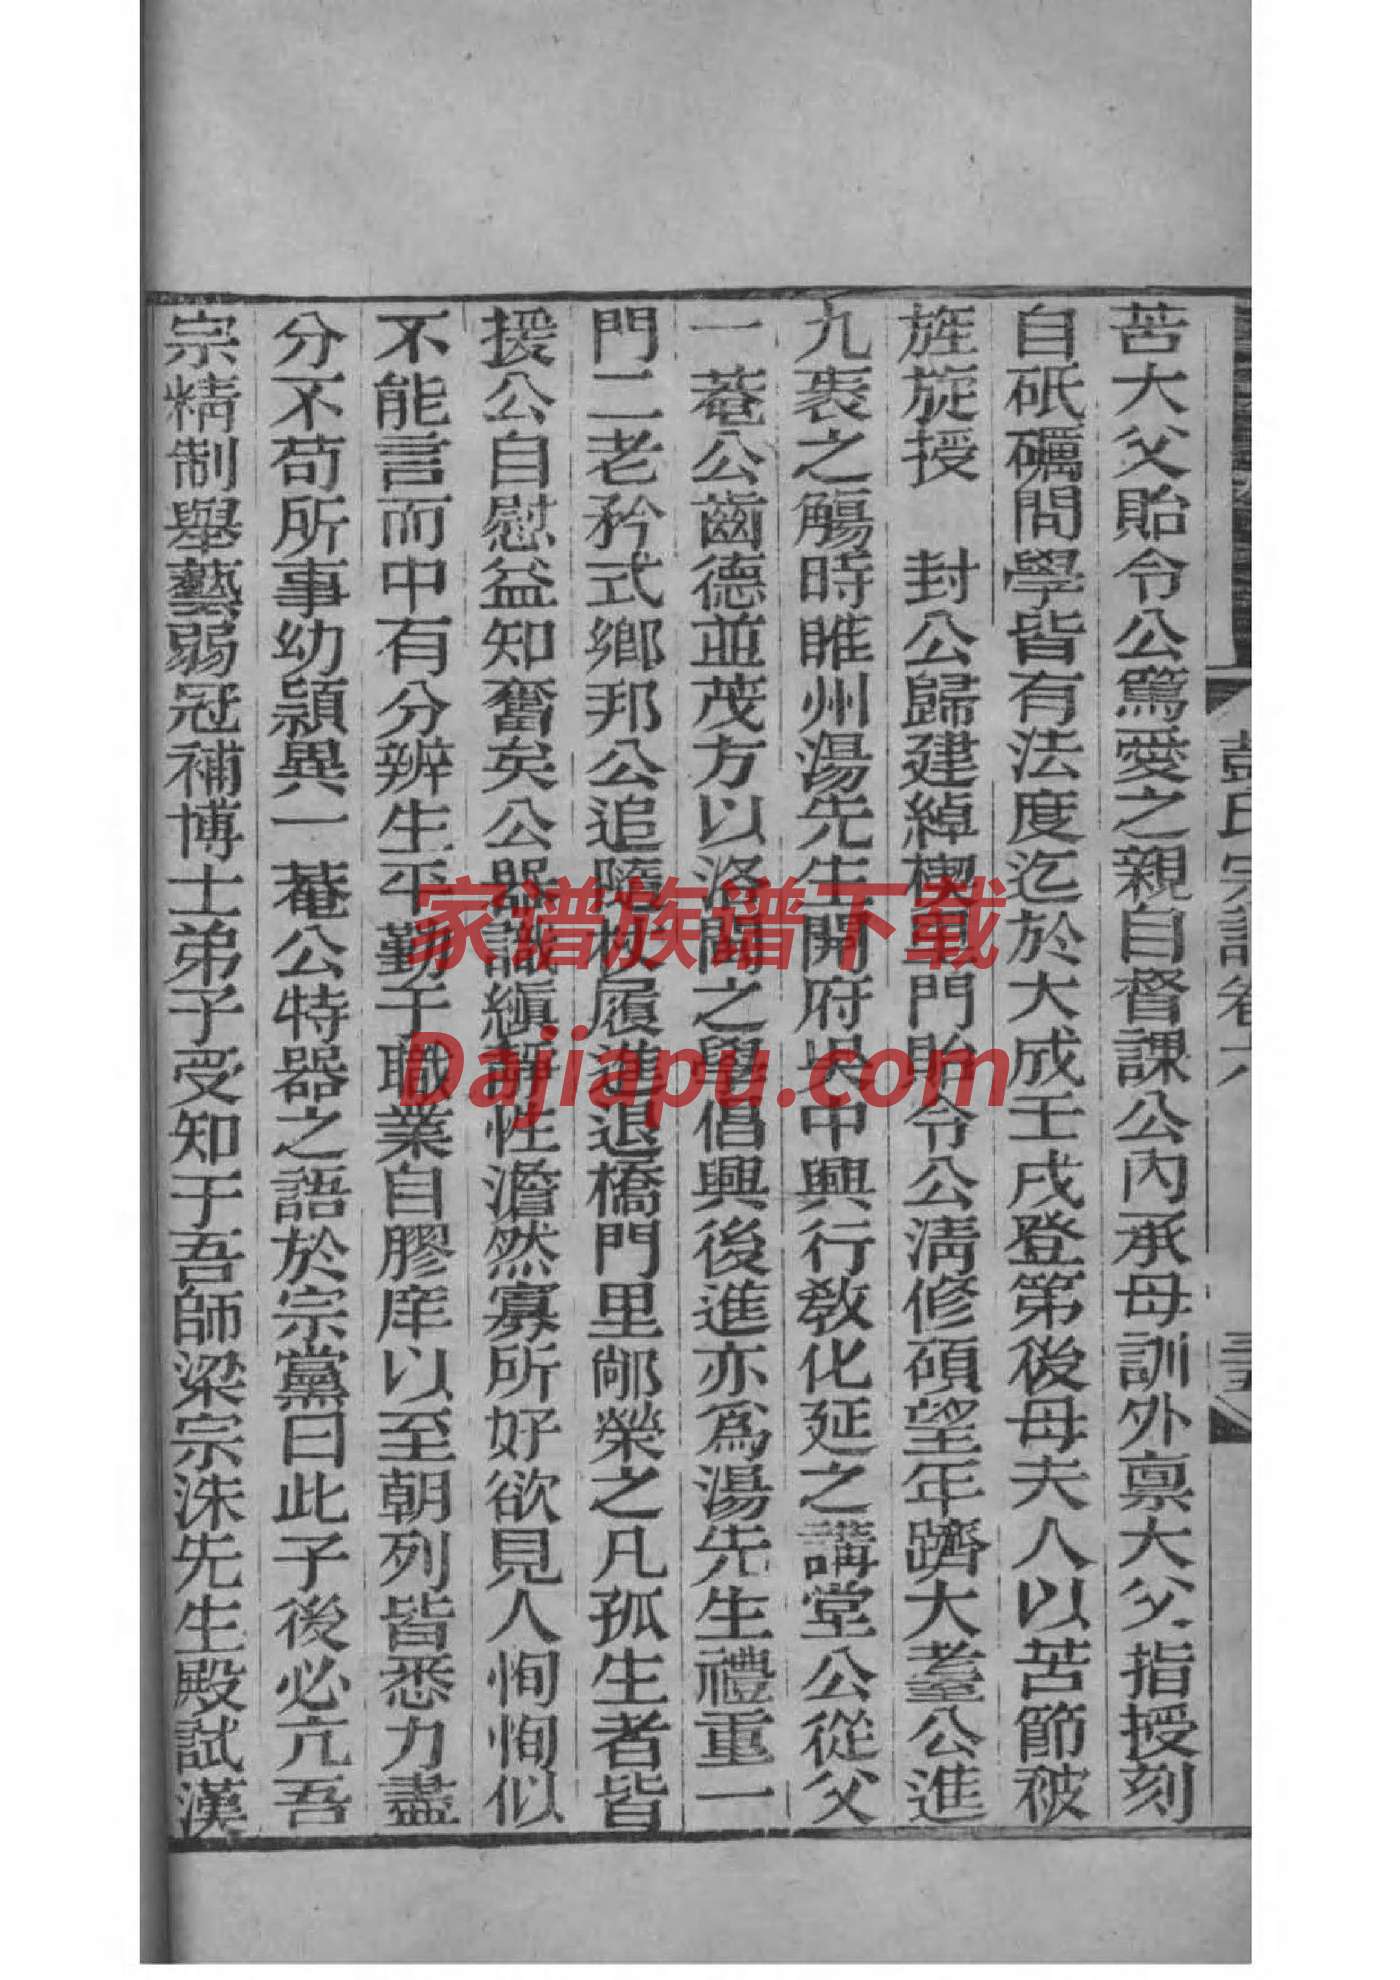 彭氏宗譜卷六
苦大父貽令公篤愛之親自督課公內承母訓外稟大父指授刻
自砥礪問學皆有法度迄於大成壬戌登第後母夫人以苦節被
旌旋授　封公歸建綽楔里門貽令公淸修碩望年躋大耋公進
九袠之觴時睢州湯先生開府吳中興行敎化延之講堂公從父
一菴公齒德並茂方以洛閩之學倡興後進亦爲湯先生禮重一
門二老矜式鄉邦公追隨杖履進退橋門里郷榮之凡孤生者皆
援公自慰益知奮矣公器識縝靜性澹然寡所好欲見人恂恂似
不能言而中有分辨生平勤于職業自膠庠以至朝列皆悉力盡
分不苟所事幼穎異一菴公特器之語於宗黨曰此子後必亢吾
宗精制舉藝弱冠補博士弟子受知于吾師梁宗洙先生殿試漢
家谱族谱下载
Dajiapu.com